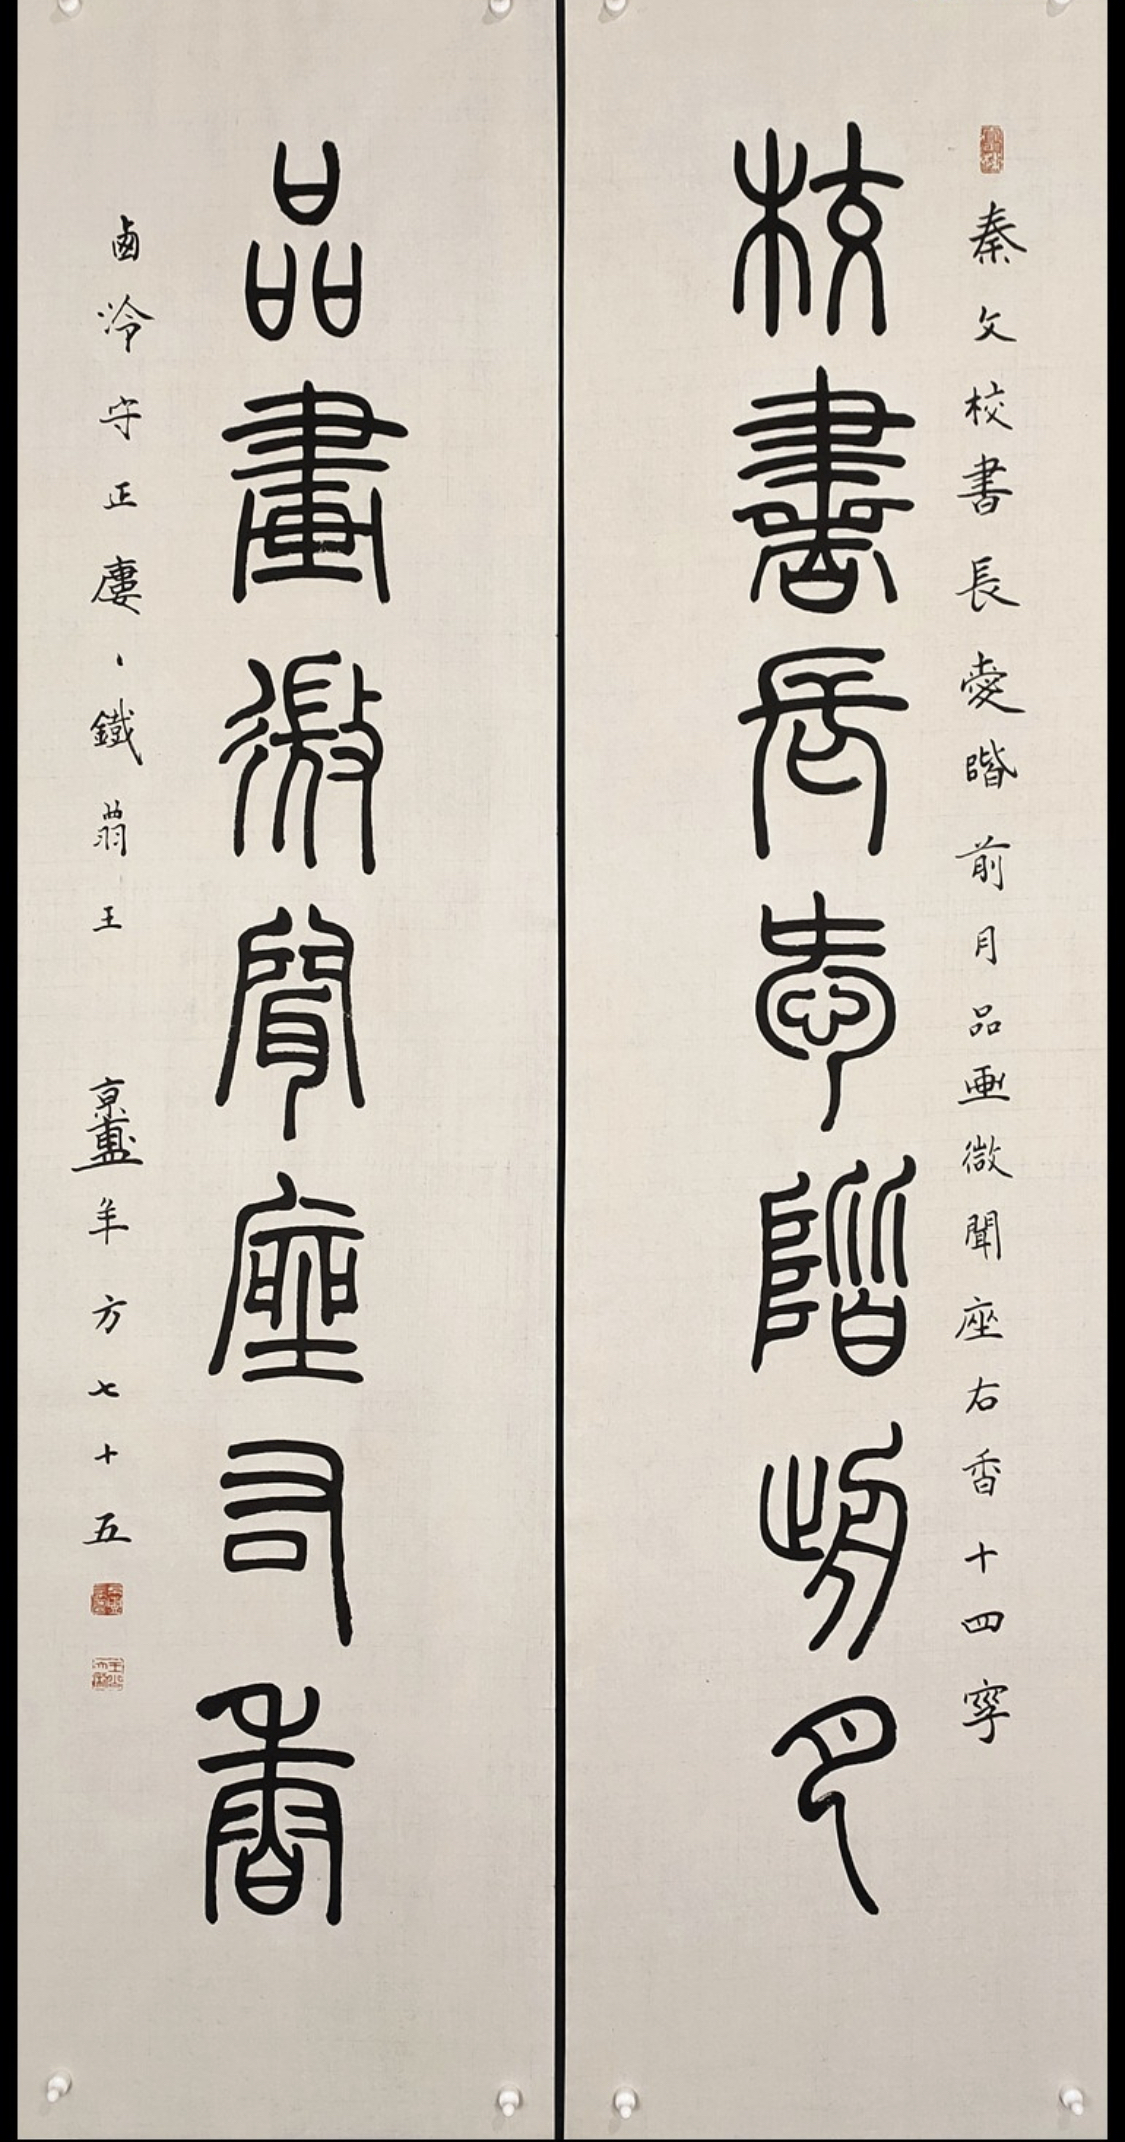 秦文校書長愛階前月品画微聞座右香十四字
校書長愛階前月
品畫微聞座右香
鹵泠守正廔、鐵翁王
年方七十五